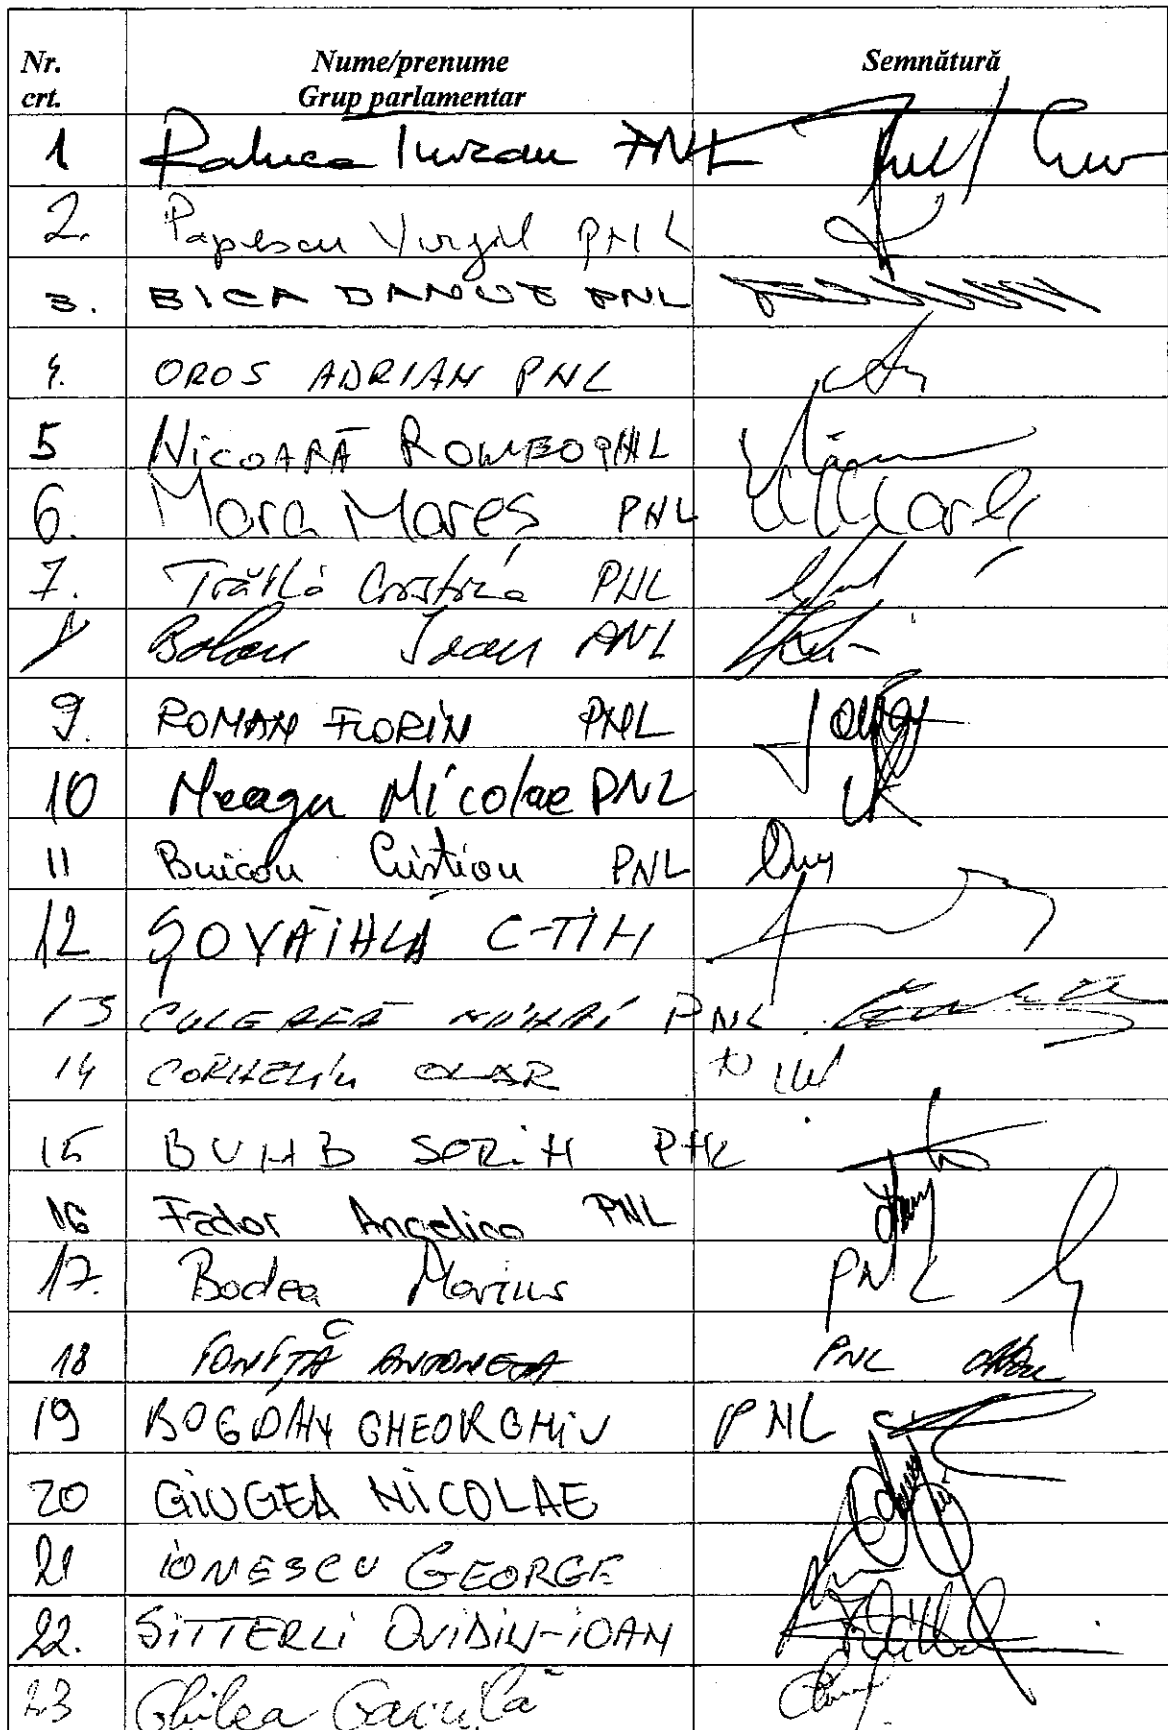 Nr. crt. Nume/prenume Grup parlamentar Semnătură
1 Raluca Turcan PNL
2. Popescu Virgil PNL
3. BICA DANUT PNL
4. OROS ADRIAN PNL
5 NICOARĂ ROMEO PNL
6. Mara Mareș PNL
7. Trăilă Cristina PNL
Balan Ioan PNL
9. ROMAN FLORIN PNL
10 Neagu Nicolae PNL
11 Buican Cristian PNL
12 ȘOVĂIALĂ C-TIN
13 CULEAFĂ MIHAI PNL
14 CORNELIU OLAR
15 BUMB SORIN PNL
16 Fador Angelica PNL
17. Bodea Marius PNL
18 IONIȚĂ ANTONETA PNL
19 BOGDAN GHEORGHIU PNL
20 GIUGEA NICOLAE
21 IONESCU GEORGE
22. SITTERLI OVIDIU-IOAN
23 Ghilea Gavrilă